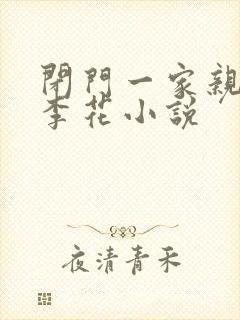 閉門一家親
李花小說
夜清青禾